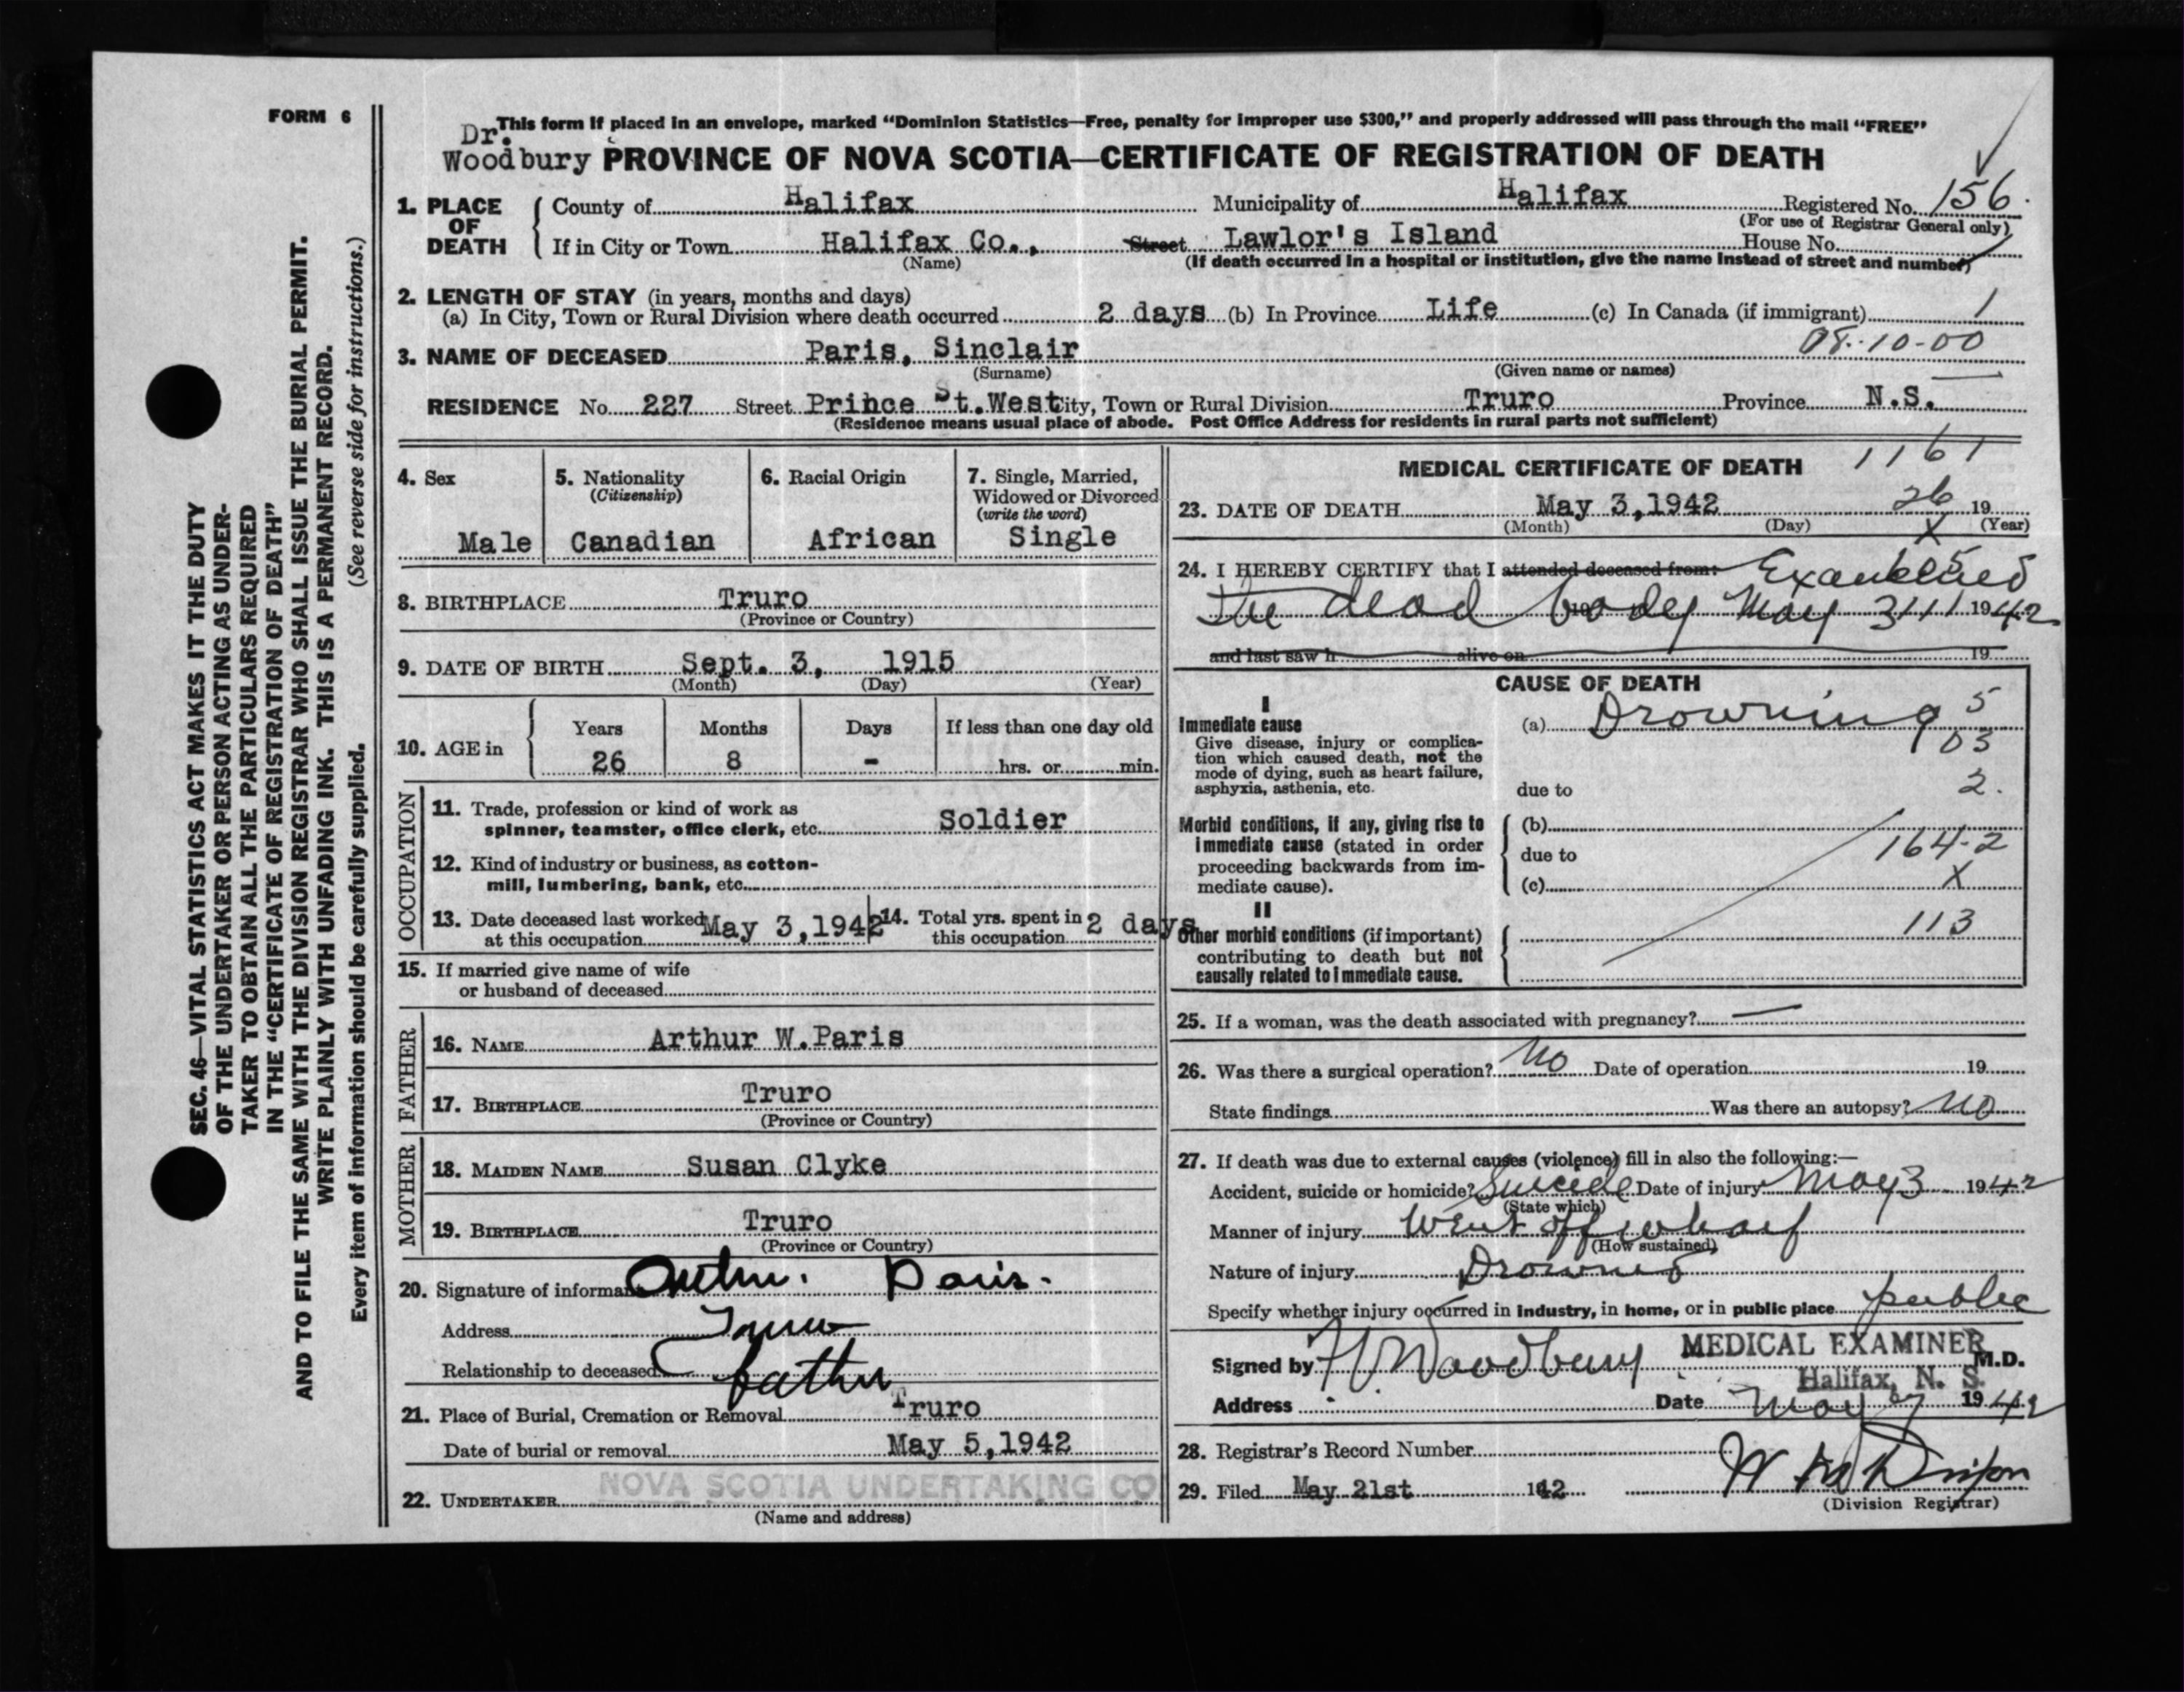 FORM 6
This form if placed in an envelope, marked “Dominion Statistics—Free, penalty for improper use $300,” and properly addressed will pass through the mail “FREE”
Dr.
Woodbury PROVINCE OF NOVA SCOTIA—CERTIFICATE OF REGISTRATION OF DEATH
1. PLACE OF DEATH
County of Halifax Municipality of Halifax Registered No. 156
(For use of Registrar General only)
If in City or Town Halifax Co., Street Lawlor's Island House No.
(Name) (If death occurred in a hospital or institution, give the name instead of street and number)
2. LENGTH OF STAY (in years, months and days)
(a) In City, Town or Rural Division where death occurred 2 days (b) In Province Life (c) In Canada (if immigrant) 1
08-10-00
3. NAME OF DECEASED Paris, Sinclair
(Surname) (Given name or names)
RESIDENCE No. 227 Street Prince St. West City, Town or Rural Division Truro Province N.S.
(Residence means usual place of abode. Post Office Address for residents in rural parts not sufficient)
4. Sex
Male
5. Nationality
(Citizenship)
Canadian
6. Racial Origin
African
7. Single, Married,
Widowed or Divorced
(write the word)
Single
8. BIRTHPLACE Truro
(Province or Country)
9. DATE OF BIRTH Sept. 3, 1915
(Month) (Day) (Year)
10. AGE in
Years Months Days If less than one day old
26 8 - hrs. or min.
OCCUPATION
11. Trade, profession or kind of work as
spinner, teamster, office clerk, etc. Soldier
12. Kind of industry or business, as cotton-
mill, lumbering, bank, etc.
13. Date deceased last worked
at this occupation May 3,1942
14. Total yrs. spent in
this occupation 2 days
15. If married give name of wife
or husband of deceased
FATHER
16. NAME Arthur W.Paris
17. BIRTHPLACE Truro
(Province or Country)
MOTHER
18. MAIDEN NAME Susan Clyke
19. BIRTHPLACE Truro
(Province or Country)
20. Signature of informant Arthur Paris.
Address Truro
Relationship to deceased father
21. Place of Burial, Cremation or Removal Truro
Date of burial or removal May 5,1942
22. UNDERTAKER NOVA SCOTIA UNDERTAKING CO
(Name and address)
MEDICAL CERTIFICATE OF DEATH 1161
26
23. DATE OF DEATH May 3,1942 19
(Month) (Day) X (Year)
24. I HEREBY CERTIFY that I attended deceased from: Examined
5
the dead body May 3 19 42
and last saw h alive on 19
CAUSE OF DEATH
I
Immediate cause
Give disease, injury or complica-
tion which caused death, not the
mode of dying, such as heart failure,
asphyxia, asthenia, etc.
(a) Drowning 5
103
due to 2.
Morbid conditions, if any, giving rise to
immediate cause (stated in order
proceeding backwards from im-
mediate cause).
(b)
due to 164-2
(c) X
II
Other morbid conditions (if important)
contributing to death but not
causally related to immediate cause.
113
25. If a woman, was the death associated with pregnancy? —
26. Was there a surgical operation? No Date of operation 19
State findings Was there an autopsy? No
27. If death was due to external causes (violence) fill in also the following:—
Accident, suicide or homicide? Suicide Date of injury May 3 1942
(State which)
Manner of injury Went off wharf
(How sustained)
Nature of injury Drowned
Specify whether injury occurred in industry, in home, or in public place public
Signed by Woodbury MEDICAL EXAMINER M.D.
Halifax, N. S.
Address Date May 7 1942
28. Registrar's Record Number
29. Filed May 21st 1942
(Division Registrar)
SEC. 46—VITAL STATISTICS ACT MAKES IT THE DUTY
OF THE UNDERTAKER OR PERSON ACTING AS UNDER-
TAKER TO OBTAIN ALL THE PARTICULARS REQUIRED
IN THE “CERTIFICATE OF REGISTRATION OF DEATH”
AND TO FILE THE SAME WITH THE DIVISION REGISTRAR WHO SHALL ISSUE THE BURIAL PERMIT.
WRITE PLAINLY WITH UNFADING INK. THIS IS A PERMANENT RECORD.
Every item of information should be carefully supplied. (See reverse side for instructions.)